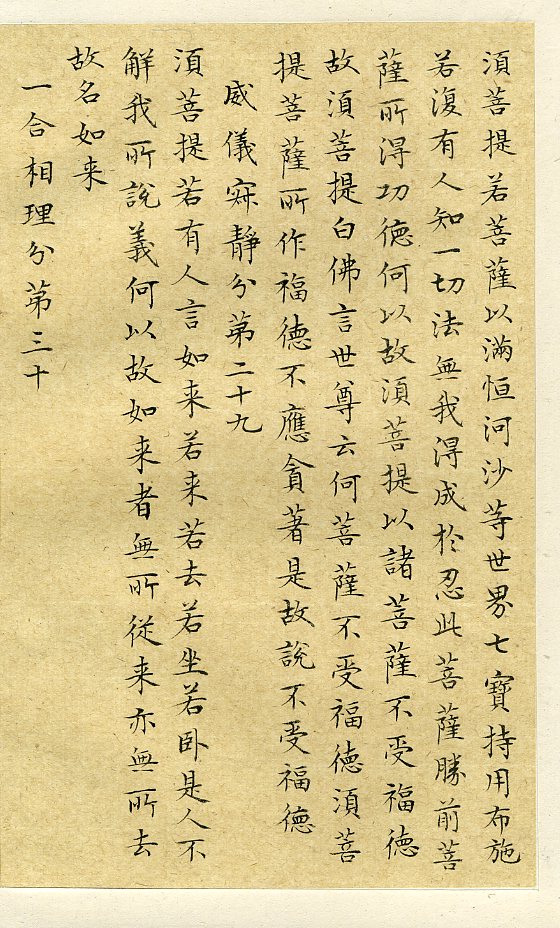 須菩提若菩薩以滿恒河沙等世界七寶持用布施
若復有人知一切法無我得成於忍此菩薩勝前菩
薩所得功德何以故須菩提以諸菩薩不受福德
故須菩提白佛言世尊云何菩薩不受福德須菩
提菩薩所作福德不應貪著是故說不受福德
威儀寂靜分第二十九
須菩提若有人言如来若来若去若坐若卧是人不
解我所說義何以故如来者無所從来亦無所去
故名如来
一合相理分第三十